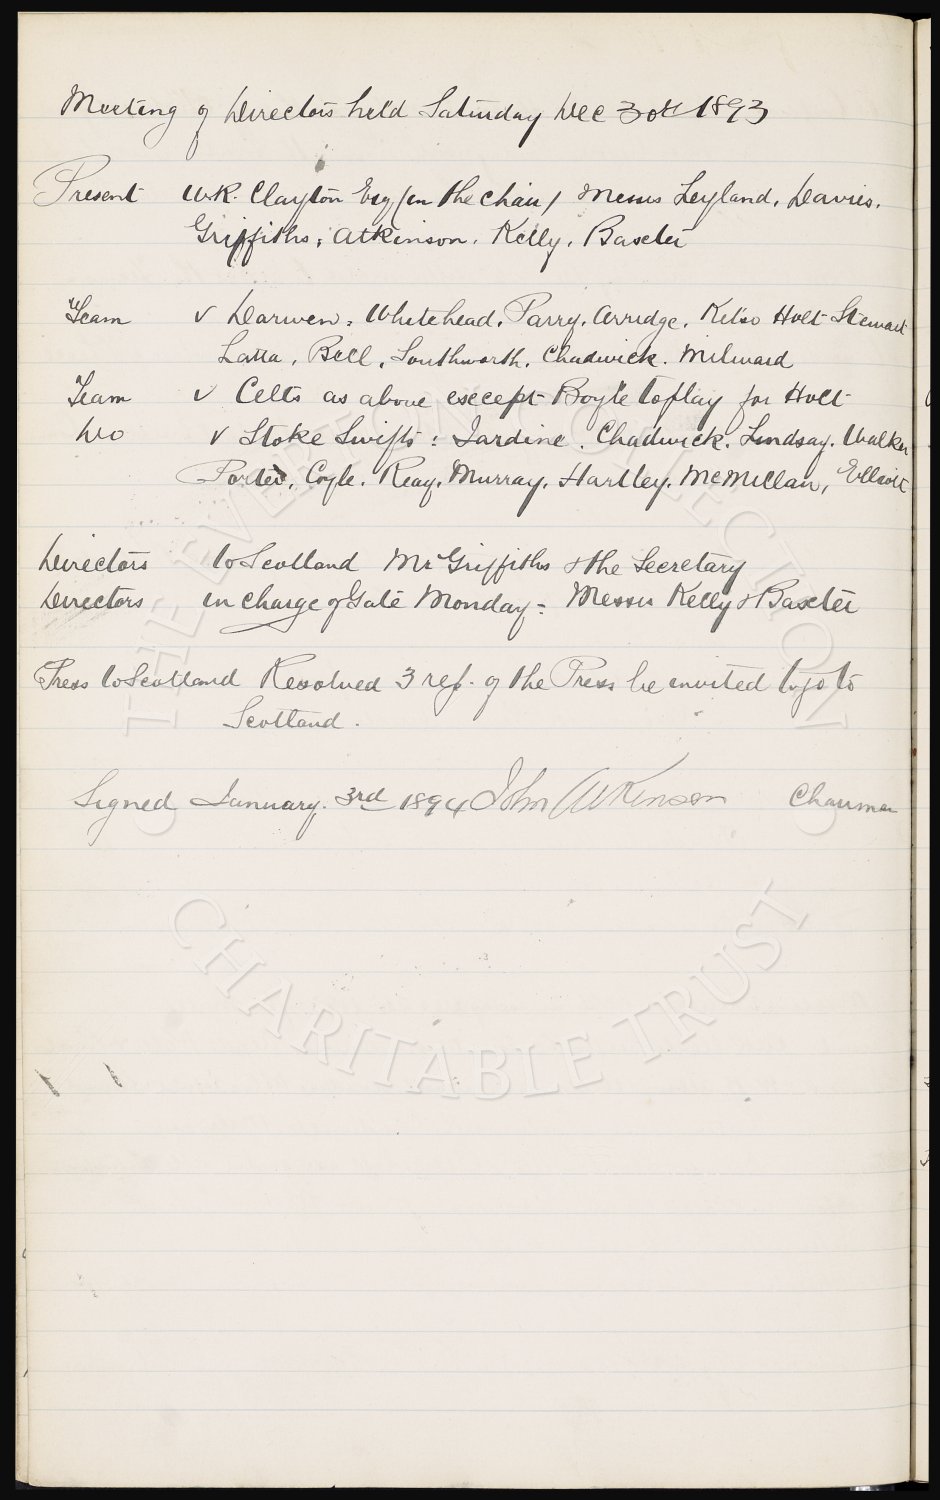 Meeting of Directors held Saturday Dec 30th 1893
Present W.R. Clayton Esq (in the chair) Messrs Leyland, Davies,
Griffiths, Atkinson, Kelly, Baxter
Team v Darwen, Whitehead, Parry, Arridge, Kelso Holt Stewart
Latta, Bell, Southworth, Chadwick, Milward
Team v Celts as above except Boyle to play for Holt
Do v Stoke Swifts: Jardine, Chadwick, Lindsay, Walker
Porter, Coyle, Reay, Murray, Hartley, McMillan, Elliott
Directors to Scotland Mr Griffiths & the Secretary
Directors in charge of Gate Monday - Messrs Kelly & Baxter
Press to Scotland Resolved 3 rep. of the Press be invited to go to
Scotland.
Signed January 3rd 1894 John Atkinson Chairman
THE EVERTON COLLECTION
CHARITABLE TRUST